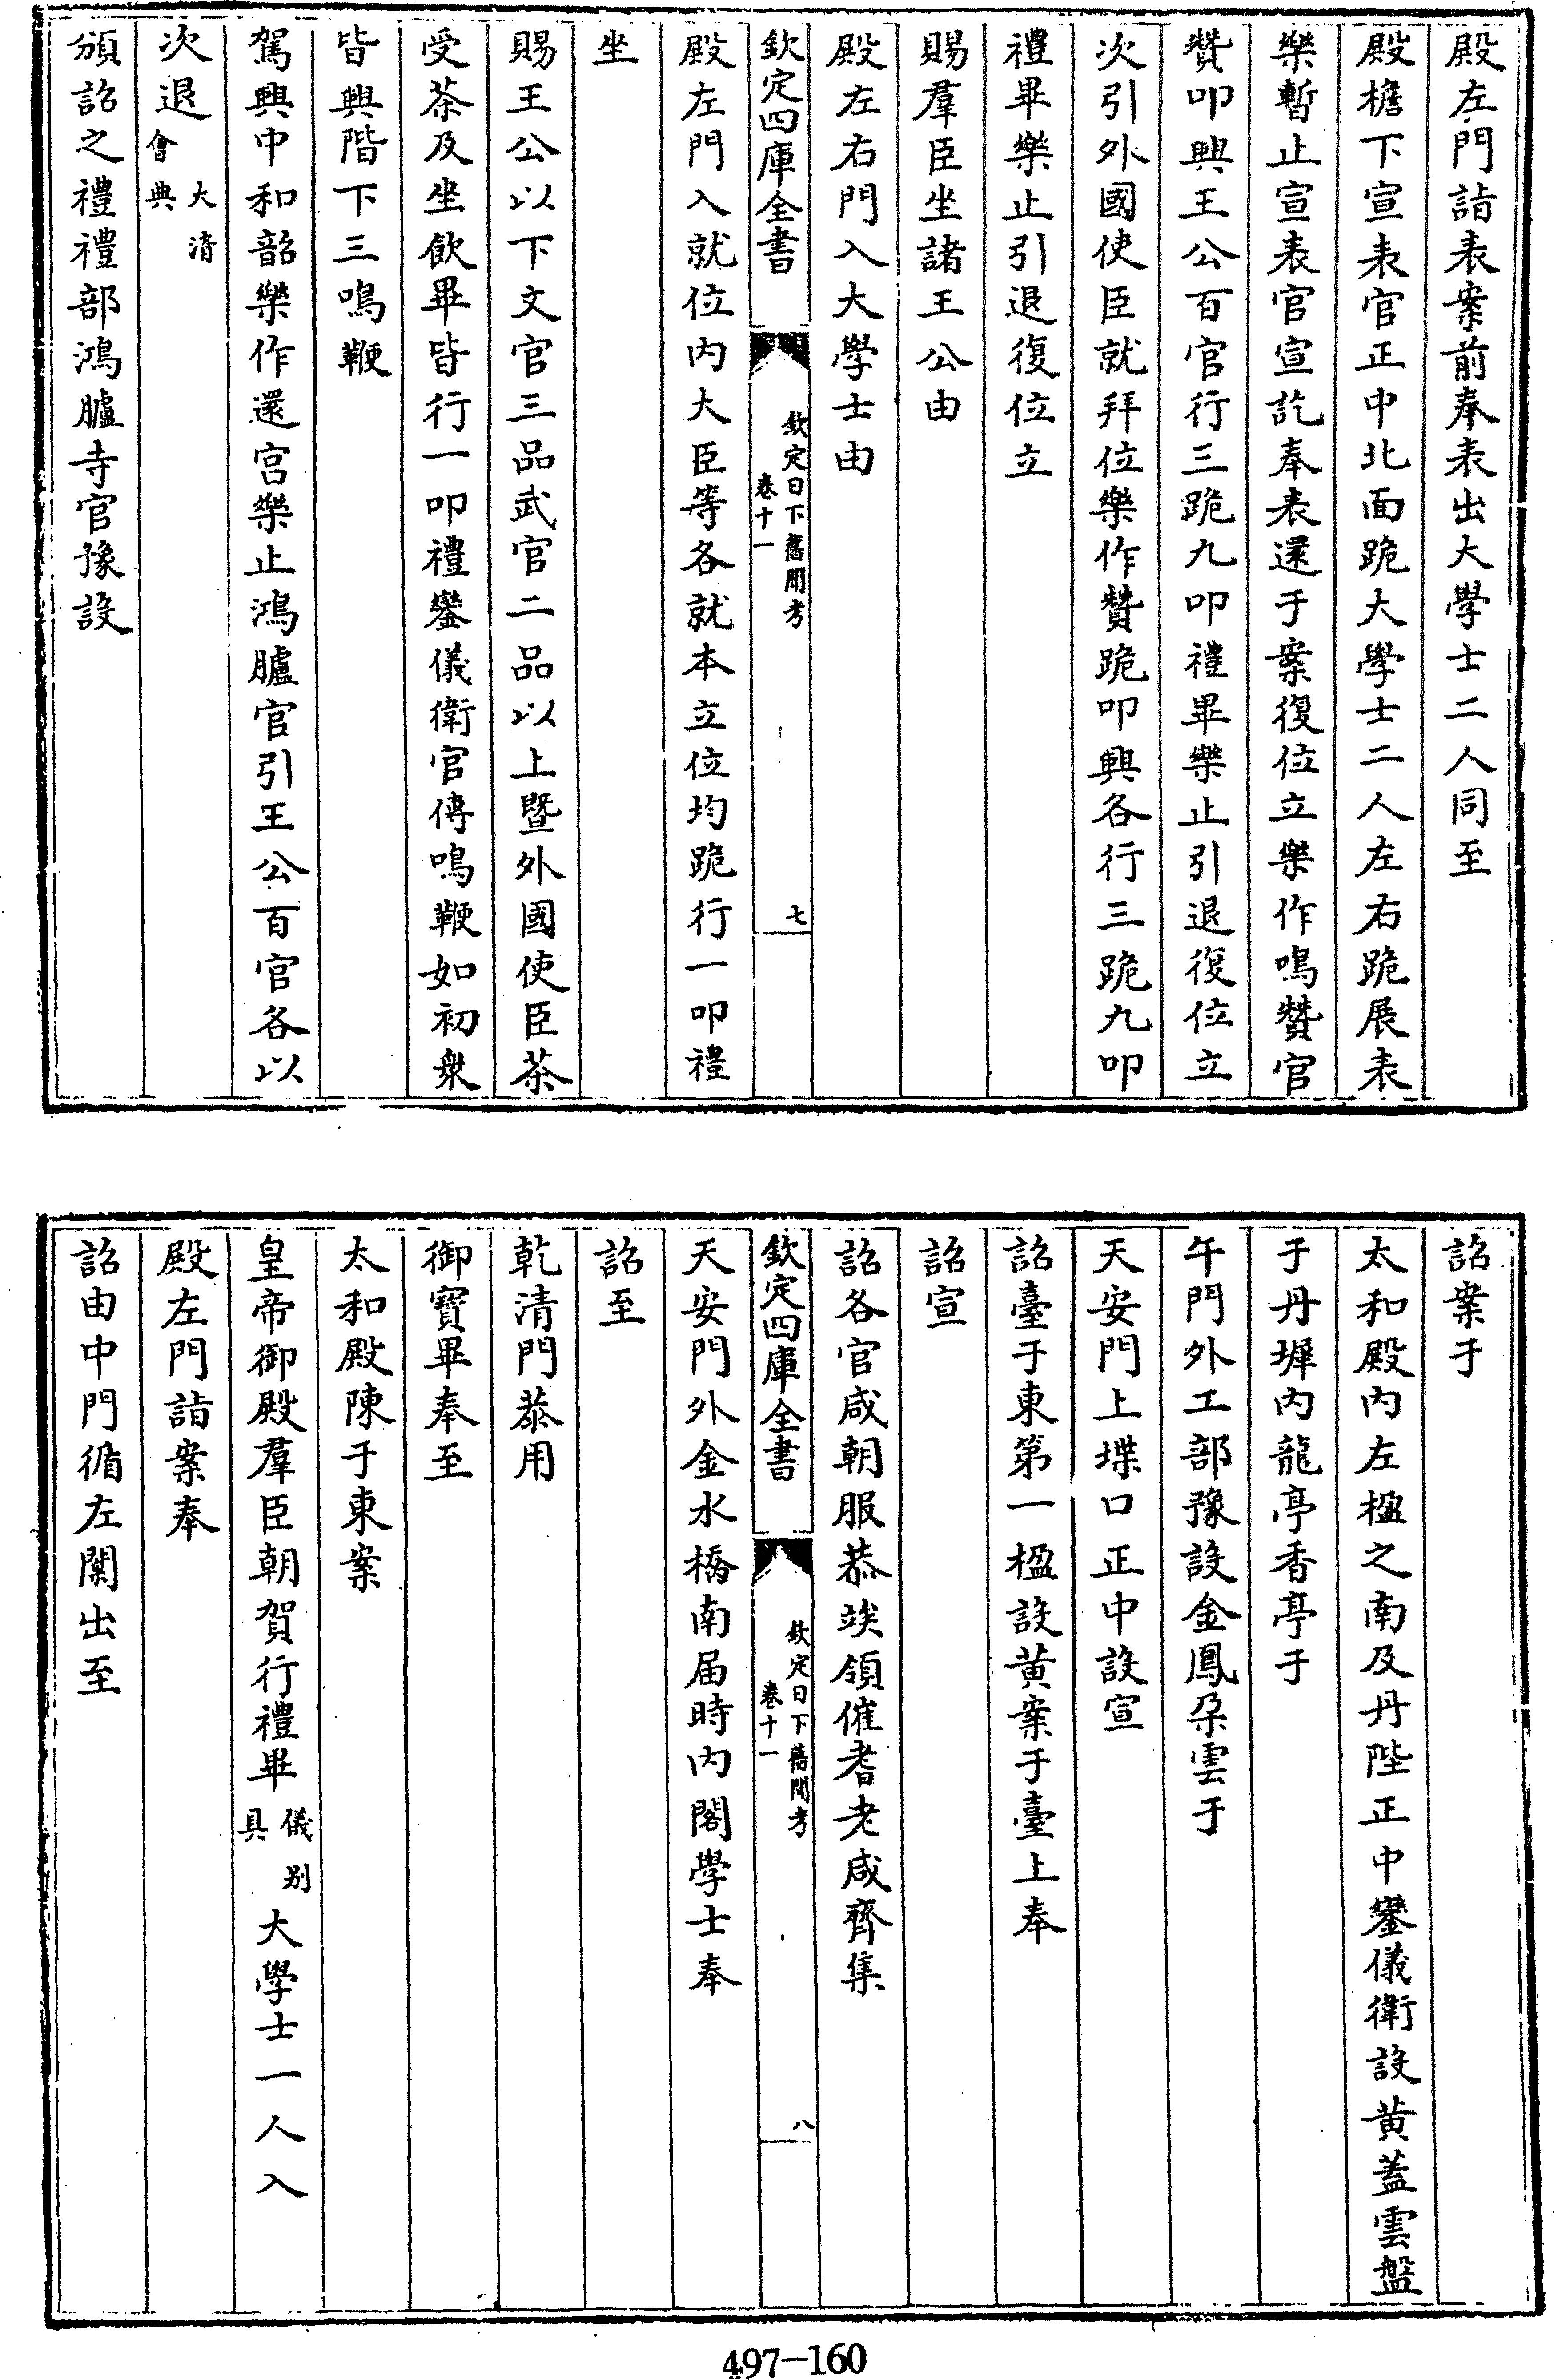 殿左門詣表案前奉表出大學士二人同至
殿檐下宣表官正中北面跪大學士二人左右跪展表
樂暫止宣表官宣訖奉表還于案復位立樂作鳴贊官
贊叩興王公百官行三跪九叩禮畢樂止引退復位立
次引外國使臣就拜位樂作贊跪叩興各行三跪九叩
禮畢樂止引退復位立
賜羣臣坐諸王公由
殿左右門入大學士由
欽定四庫全書
欽定日下舊聞考
卷十一
七
殿左門入就位內大臣等各就本立位均跪行一叩禮
坐
賜王公以下文官三品武官二品以上暨外國使臣茶
受茶及坐飲畢皆行一叩禮鑾儀衛官傳鳴鞭如初衆
皆興階下三鳴鞭
駕興中和韶樂作還宮樂止鴻臚官引王公百官各以
次退大清會典
頒詔之禮禮部鴻臚寺官豫設
詔案于
太和殿內左楹之南及丹陛正中鑾儀衛設黃蓋雲盤
于丹墀內龍亭香亭于
午門外工部豫設金鳳朶雲于
天安門上堞口正中設宣
詔臺于東第一楹設黃案于臺上奉
詔宣
詔各官咸朝服恭竢領催耆老咸齊集
欽定四庫全書
欽定日下舊聞考
卷十一
八
天安門外金水橋南屆時內閣學士奉
詔至
乾清門恭用
御寶畢奉至
太和殿陳于東案
皇帝御殿羣臣朝賀行禮畢儀別具大學士一人入
殿左門詣案奉
詔由中門循左闑出至
497-160